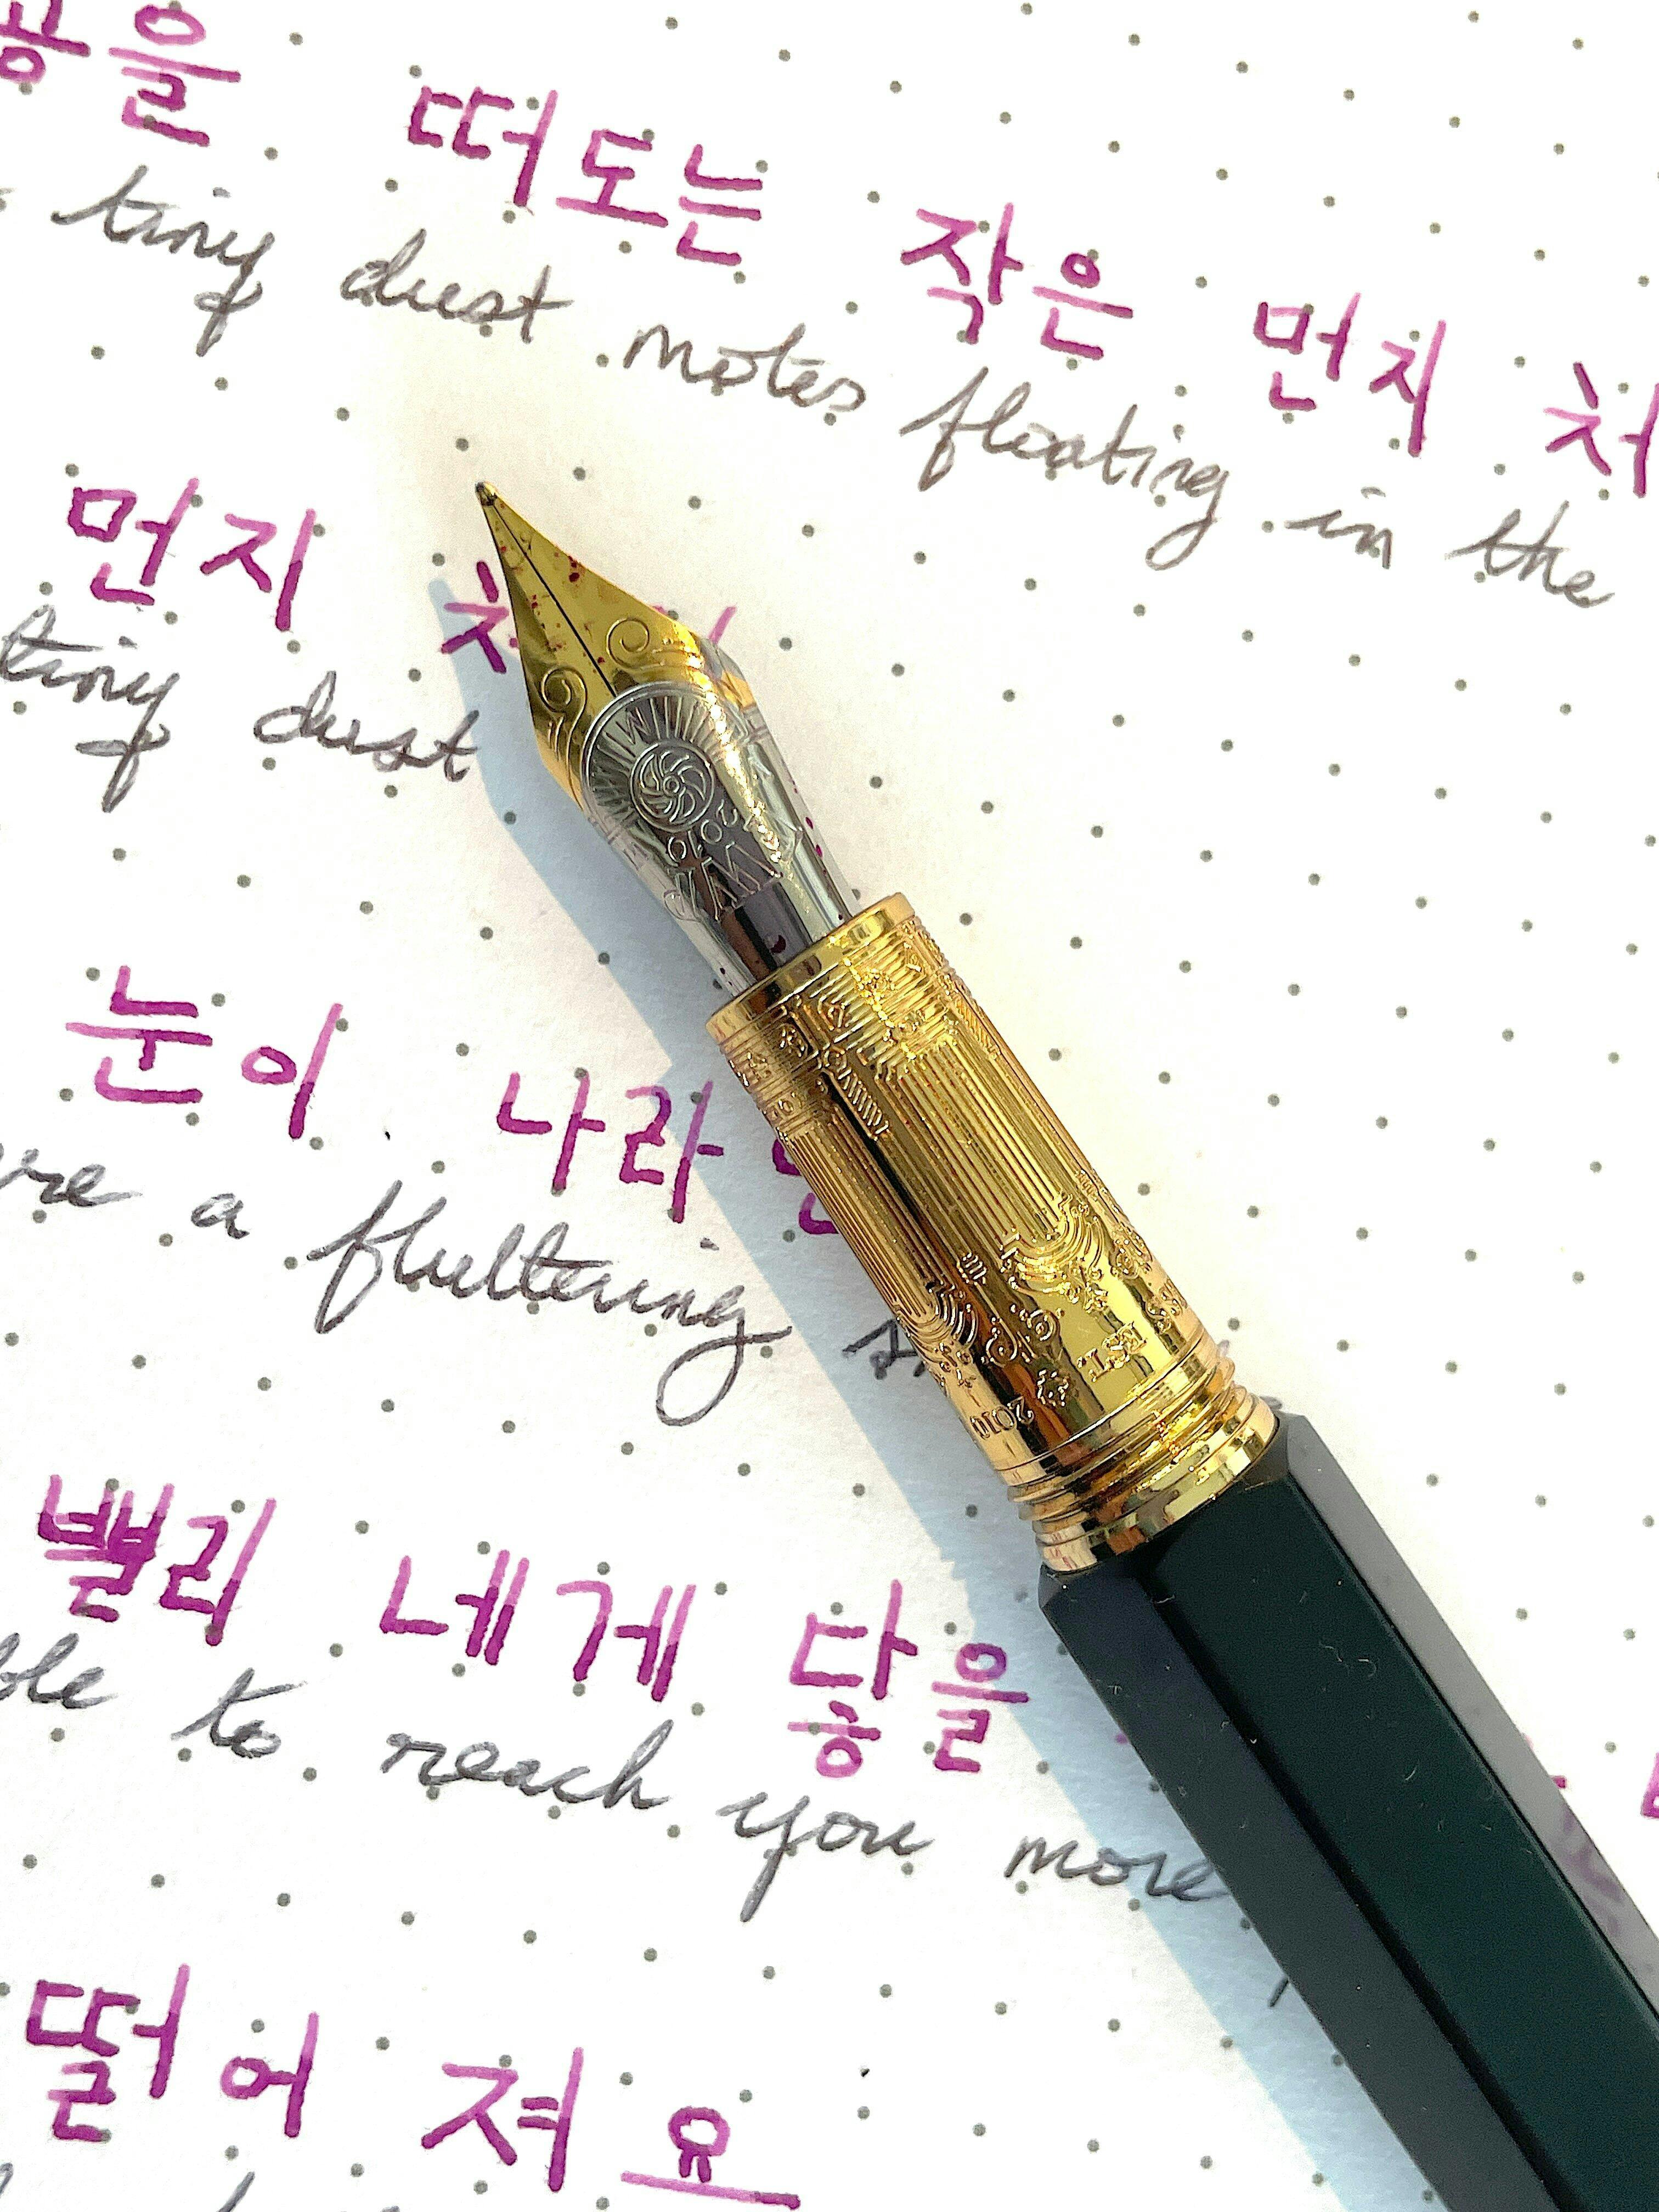 떠도는 작은 먼지
tiny dust motes floating in the
먼지
tiny dust
눈이 나라
a fluttering
빨리 네게 닿을
to reach you more
떨어져요
EST. 2010